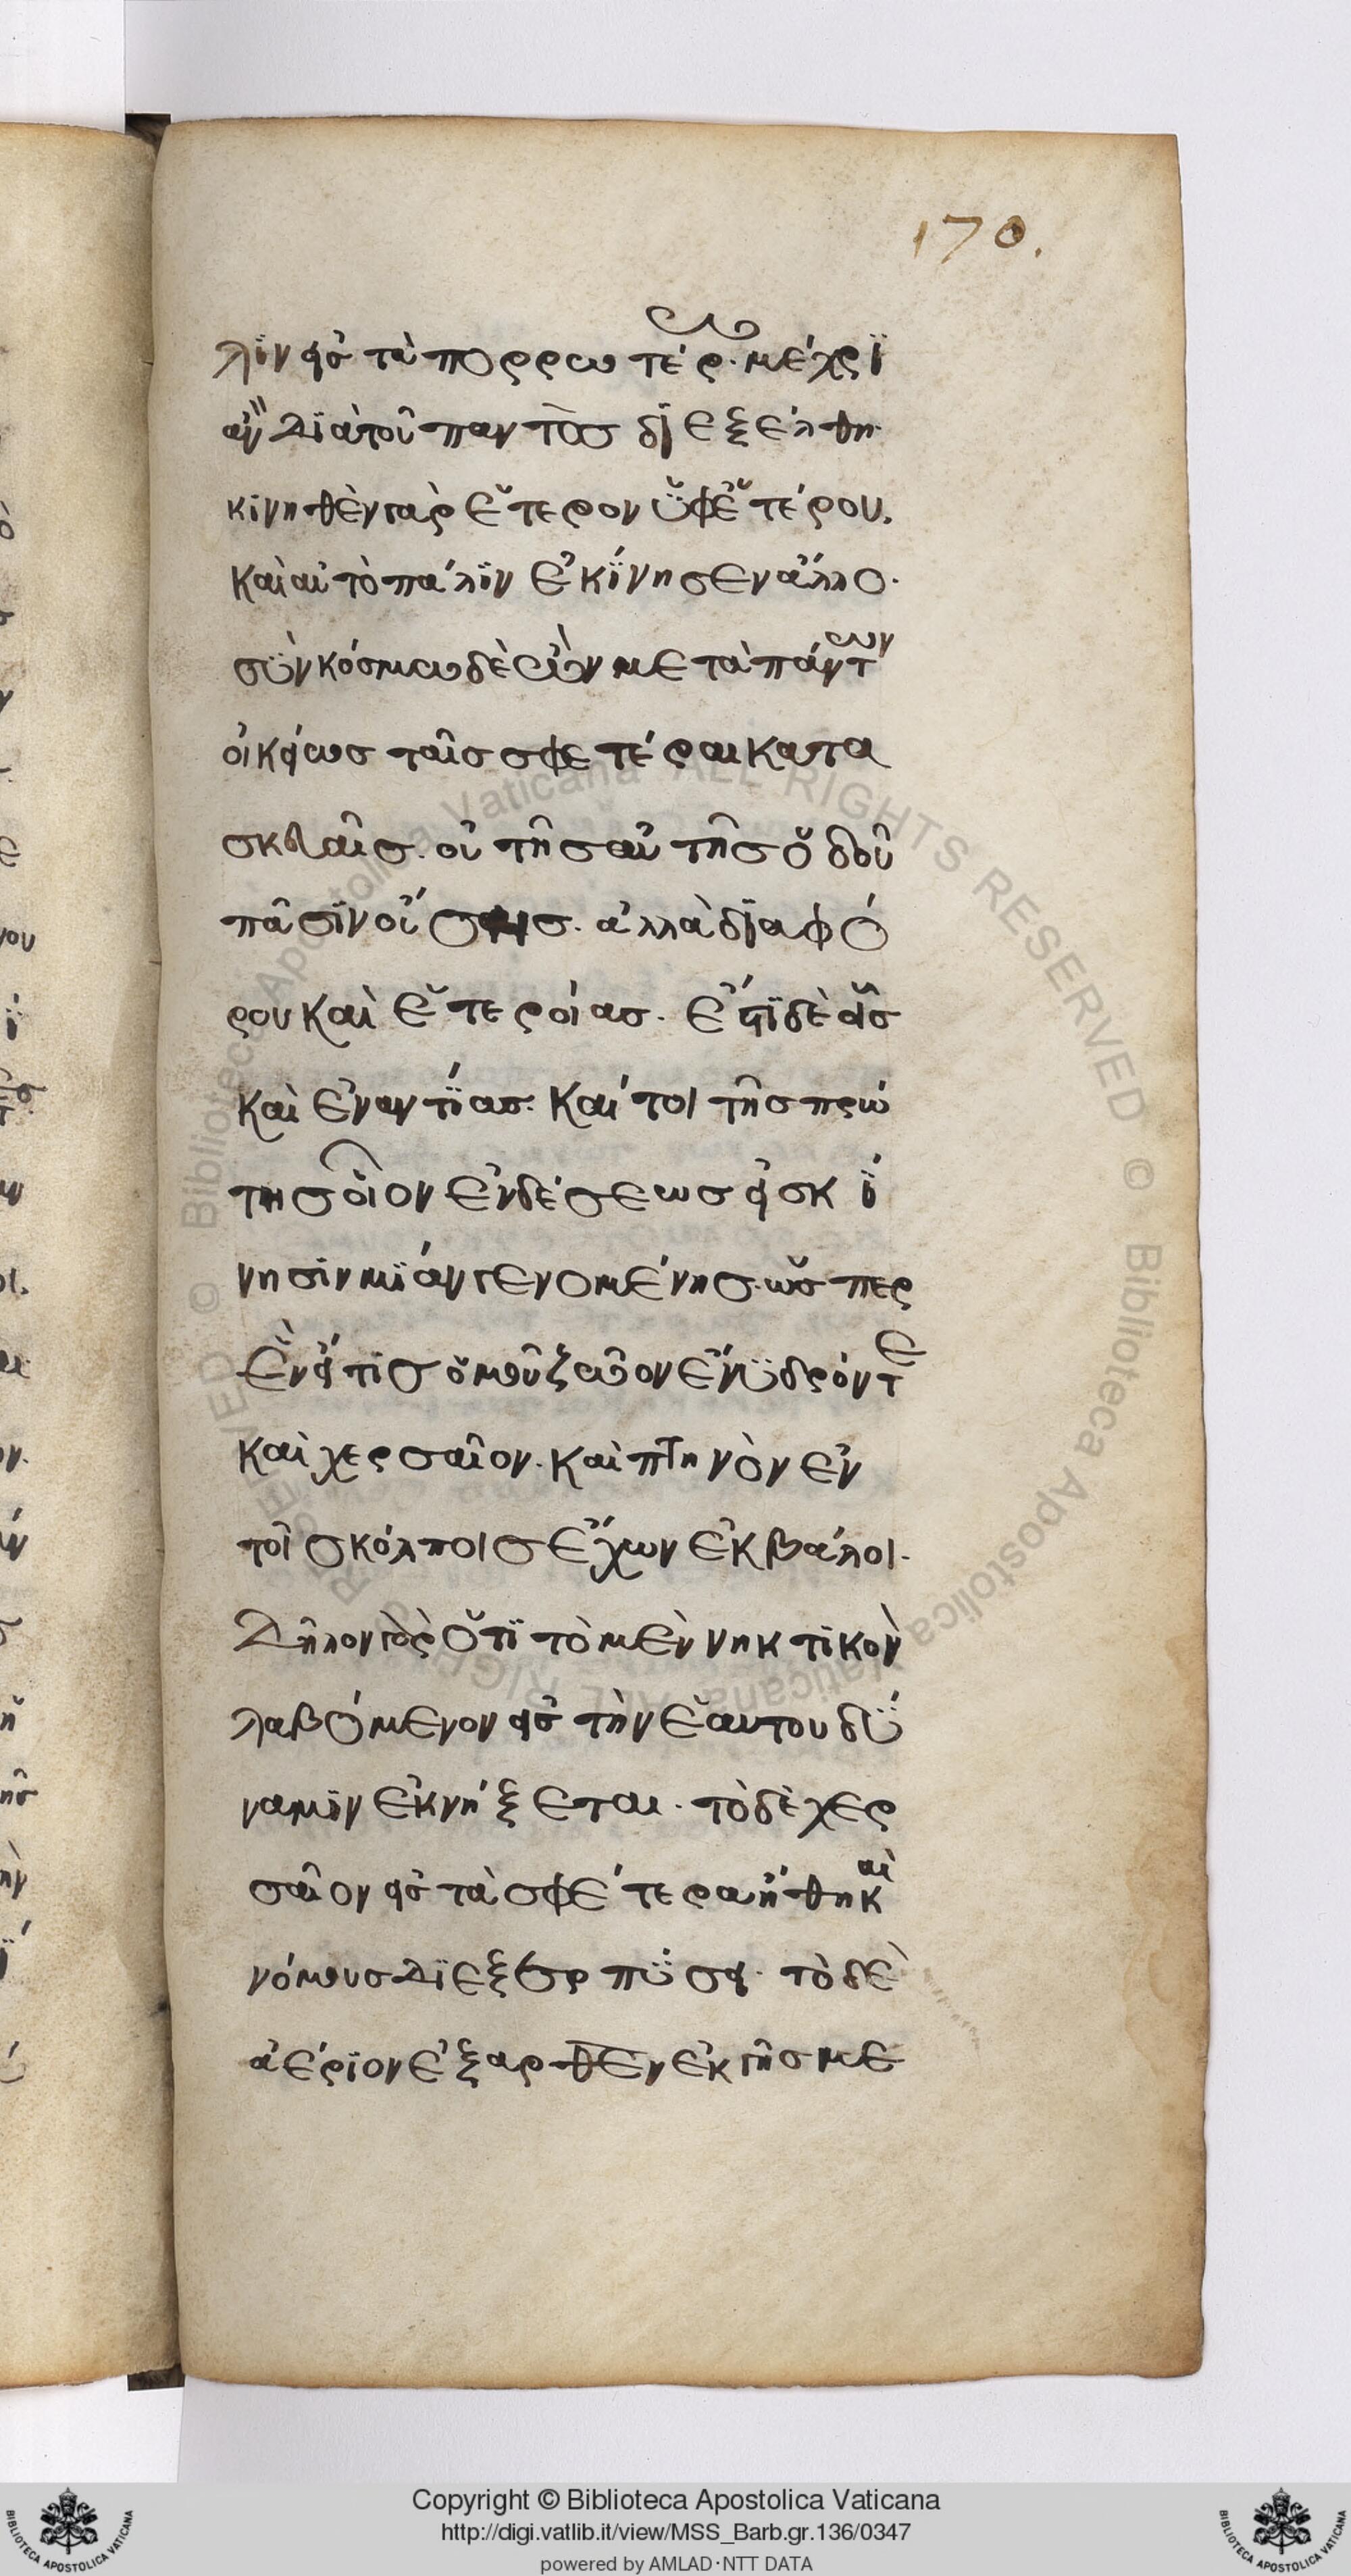 170.
λϊν εἰσ τὰ πορρωτέρω· μέχρϊ
ἂν δϊὰ τοῦ παντὸσ δϊεξέλθη·
κϊνηθὲν γὰρ ἕτερον ὑφ' ἑτέρου.
καὶ αὐτὸ πάλϊν ἐκΐνησεν ἄλλο·
σϋν κόσμω δὲ ὢν μετὰ πάντων
οἰκείωσ ταῖσ σφετέραι κατα
σκευαῖσ· οὐ τῆσ αὐτῆσ ὁδοῦ
πᾶσϊν οὔσησ· ἀλλὰ δϊαφό
ρου καὶ ἑτεροίασ· ἔτϊ δὲ αἷσ
καὶ ἐναντΐασ· καί τοι τῆσ πρώ
τησ οἷον ἐνδέσεωσ εἰσ κΐ
νησϊν μϊὰν γενομένησ· ὥσπερ
ἂν εἴ τϊσ ὁμοῦ ζῶον ἔνϋδρόν τε
καὶ χερσαῖον· καὶ πτηνὸν ἐν
τοῖσ κόλποισ ἔχων ἐκβάλοι·
Δῆλον γὰρ ὅτϊ τὸ μὲν νηκτϊκὸν
λαβόμενον εἰσ τὴν ἑαυτου δΰ
ναμϊν ἐκνήξεται· τὸ δὲ χερ
σαῖον εἰσ τὰ σφέτερα ἤθη καὶ
νόμουσ δϊεξερπϋσει· τὸ δὲ
ἀέρϊον ἐξαρθὲν ἐκ γῆσ με
Copyright © Biblioteca Apostolica Vaticana
http://digi.vatlib.it/view/MSS_Barb.gr.136/0347
powered by AMLAD·NTT DATA